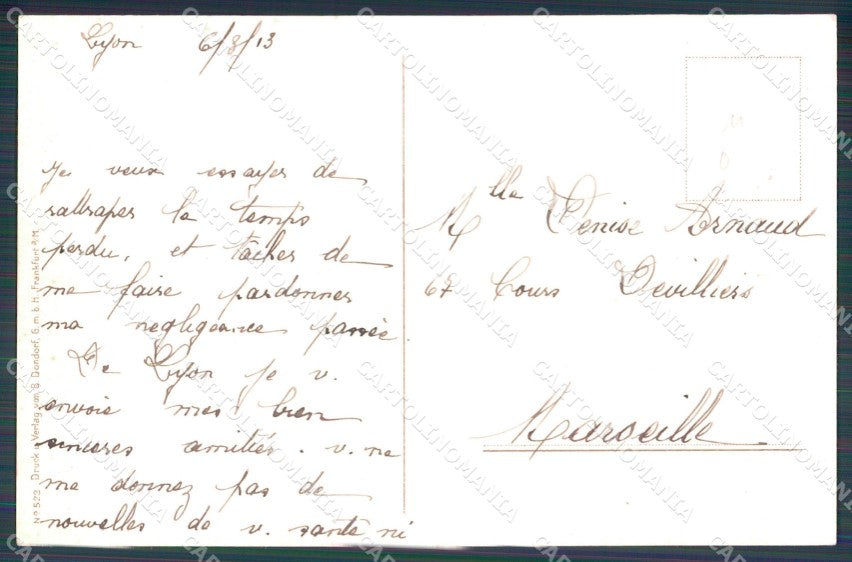 Lyon 6/8/13
Je veux essayer de
rattraper le temps
perdu, et tâcher de
me faire pardonner
ma negligeance passée.
De Lyon je v.
envoie mes bien
sincères amitiés. v. ne
me donnez pas de
nouvelles de v. santé ni
Mlle Denise Arnaud
67 Cours Devilliers
Marseille
No 522 Druck u. Verlag von B. Dondorf, G.m.b.H. Frankfurt a/M.
CARTOLINOMANIA